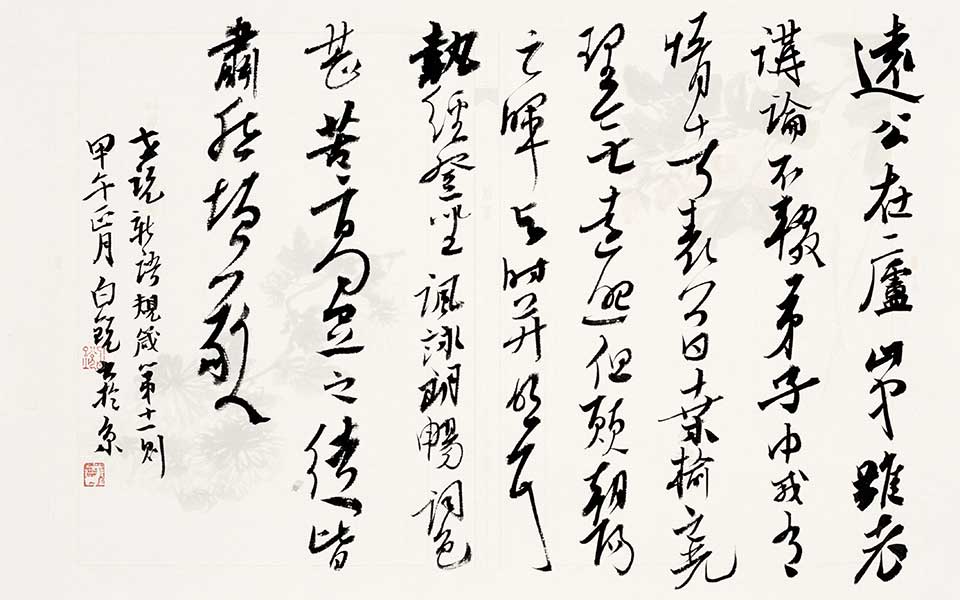 遠公在廬山中雖老
講論不輟弟子中或有
惰者遠公曰桑榆之光
理無遠照但願朝陽
之暉與時並明耳
執經登坐諷詠朗暢詞色
甚苦高足之徒皆
肅然增敬
世說新語規箴第十一則
甲午正月白書於京